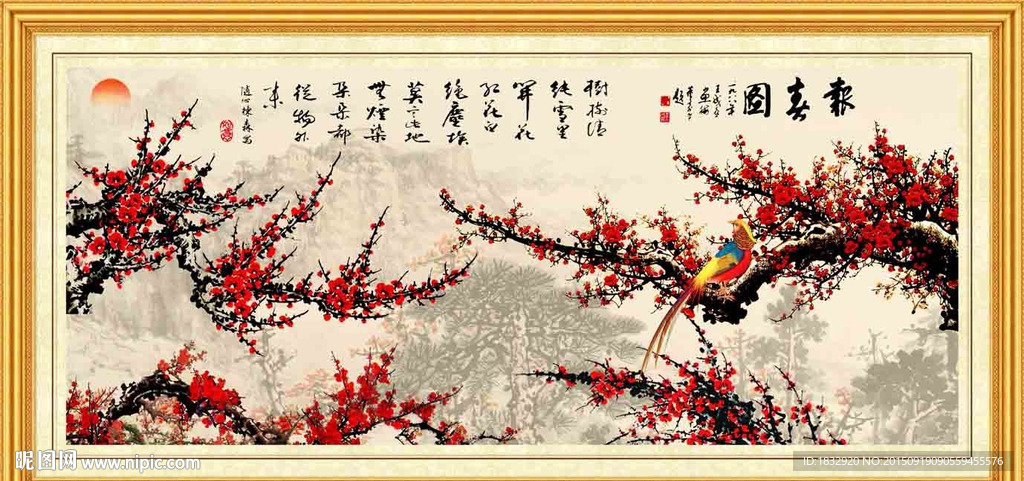 報春圖
樹樹清
純雪里
開花
紅花白
絕塵埃
莫言此地
無煙染
朵朵都
從物外
来
昵图网 www.nipic.com
ID:1832920 NO:20150919090559455576